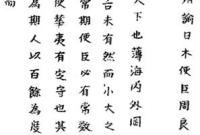 諭日本使臣周良
天下也薄海內外罔
古未有然而小大之
當期使臣必有常數
使華夷有定守也其
為期人以百餘為度
而